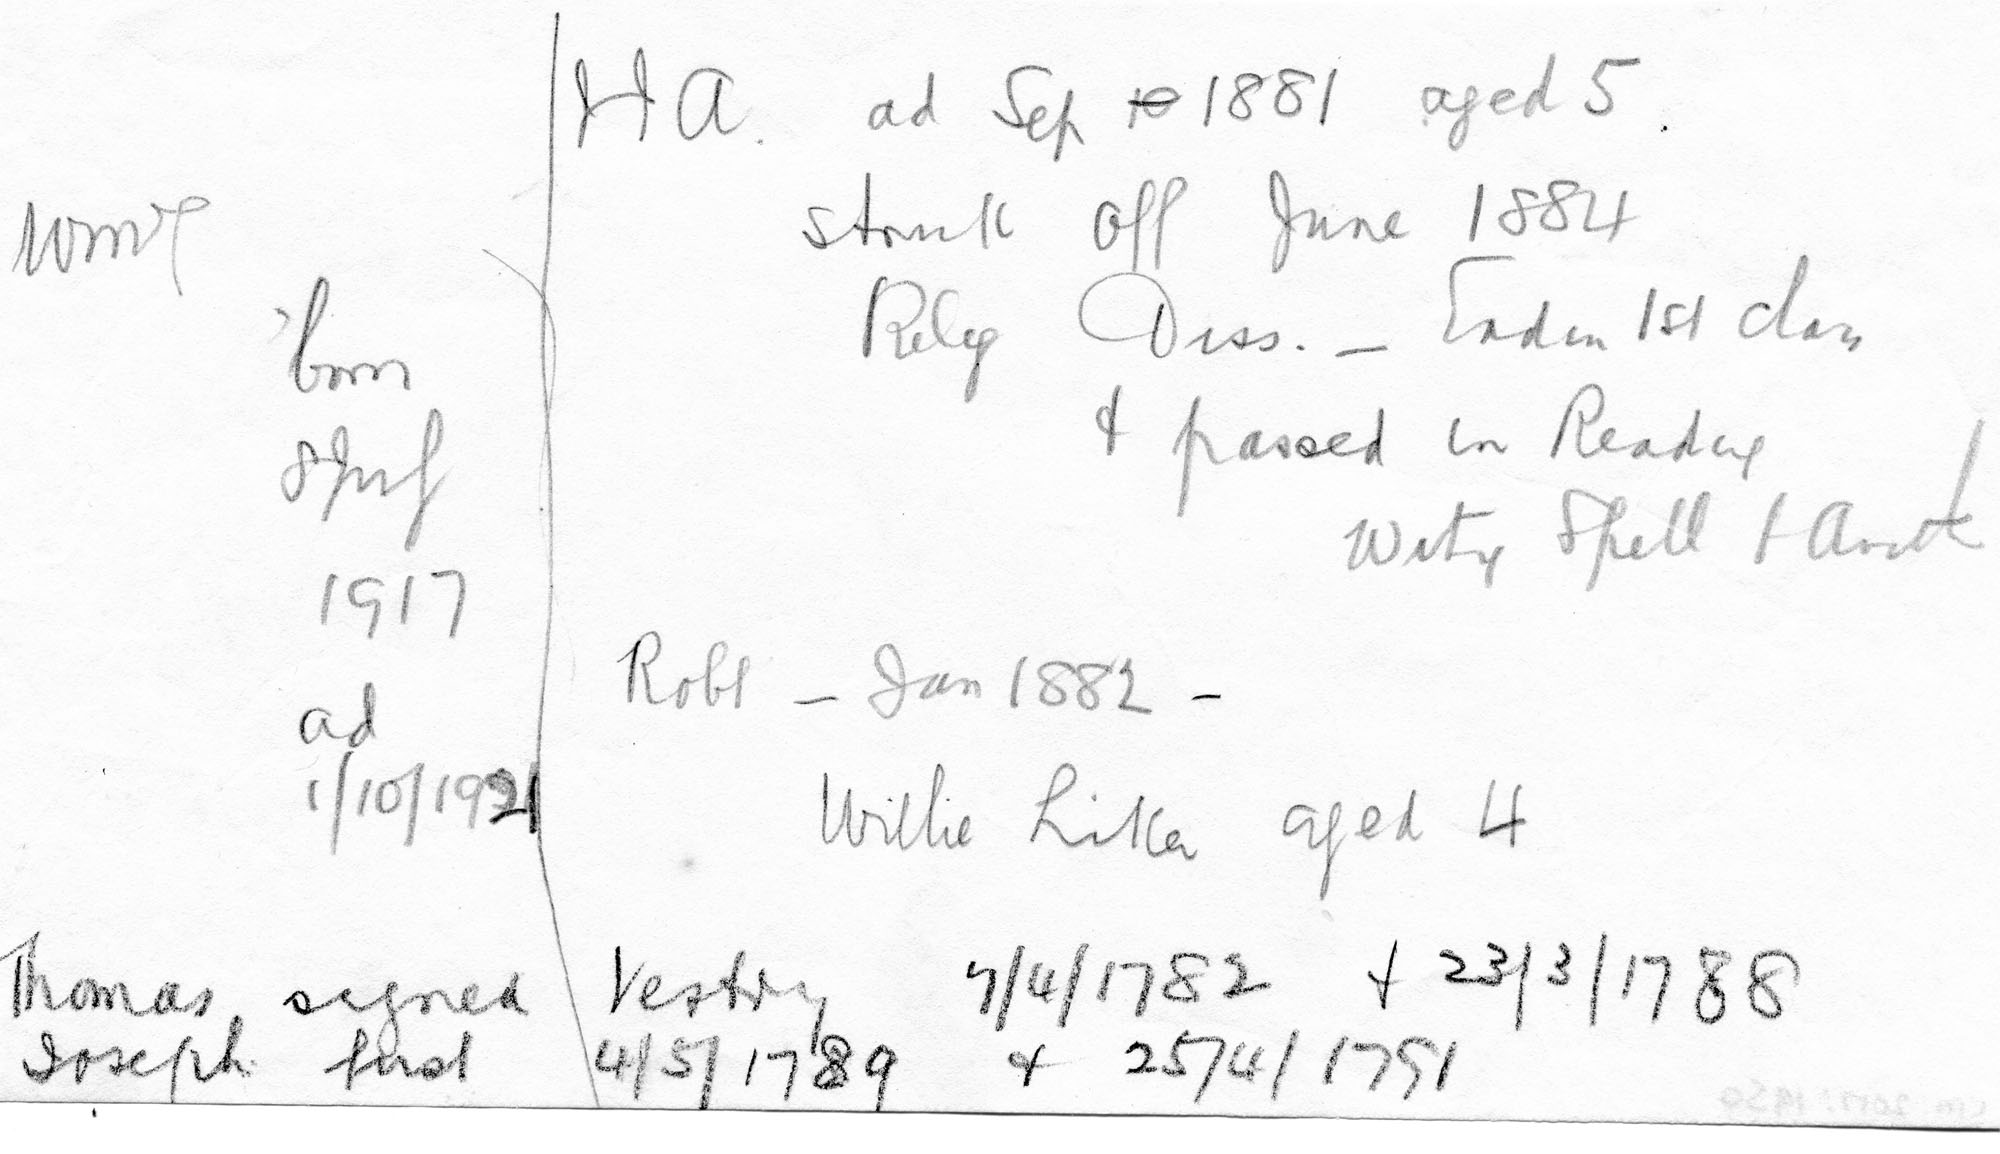 H A. ad Sep 1881 aged 5.
struck off June 1884
Relig Diss. - End in 1st class
& passed in Reading
Writg Spell & Arith
Wm
born
8 July
1917
ad
1/10/1921
Robt - Jan 1882 -
Willie aged 4
Thomas signed Vestry 7/4/1782 + 23/3/1788
Joseph first 4/5/1789 + 25/4/1791